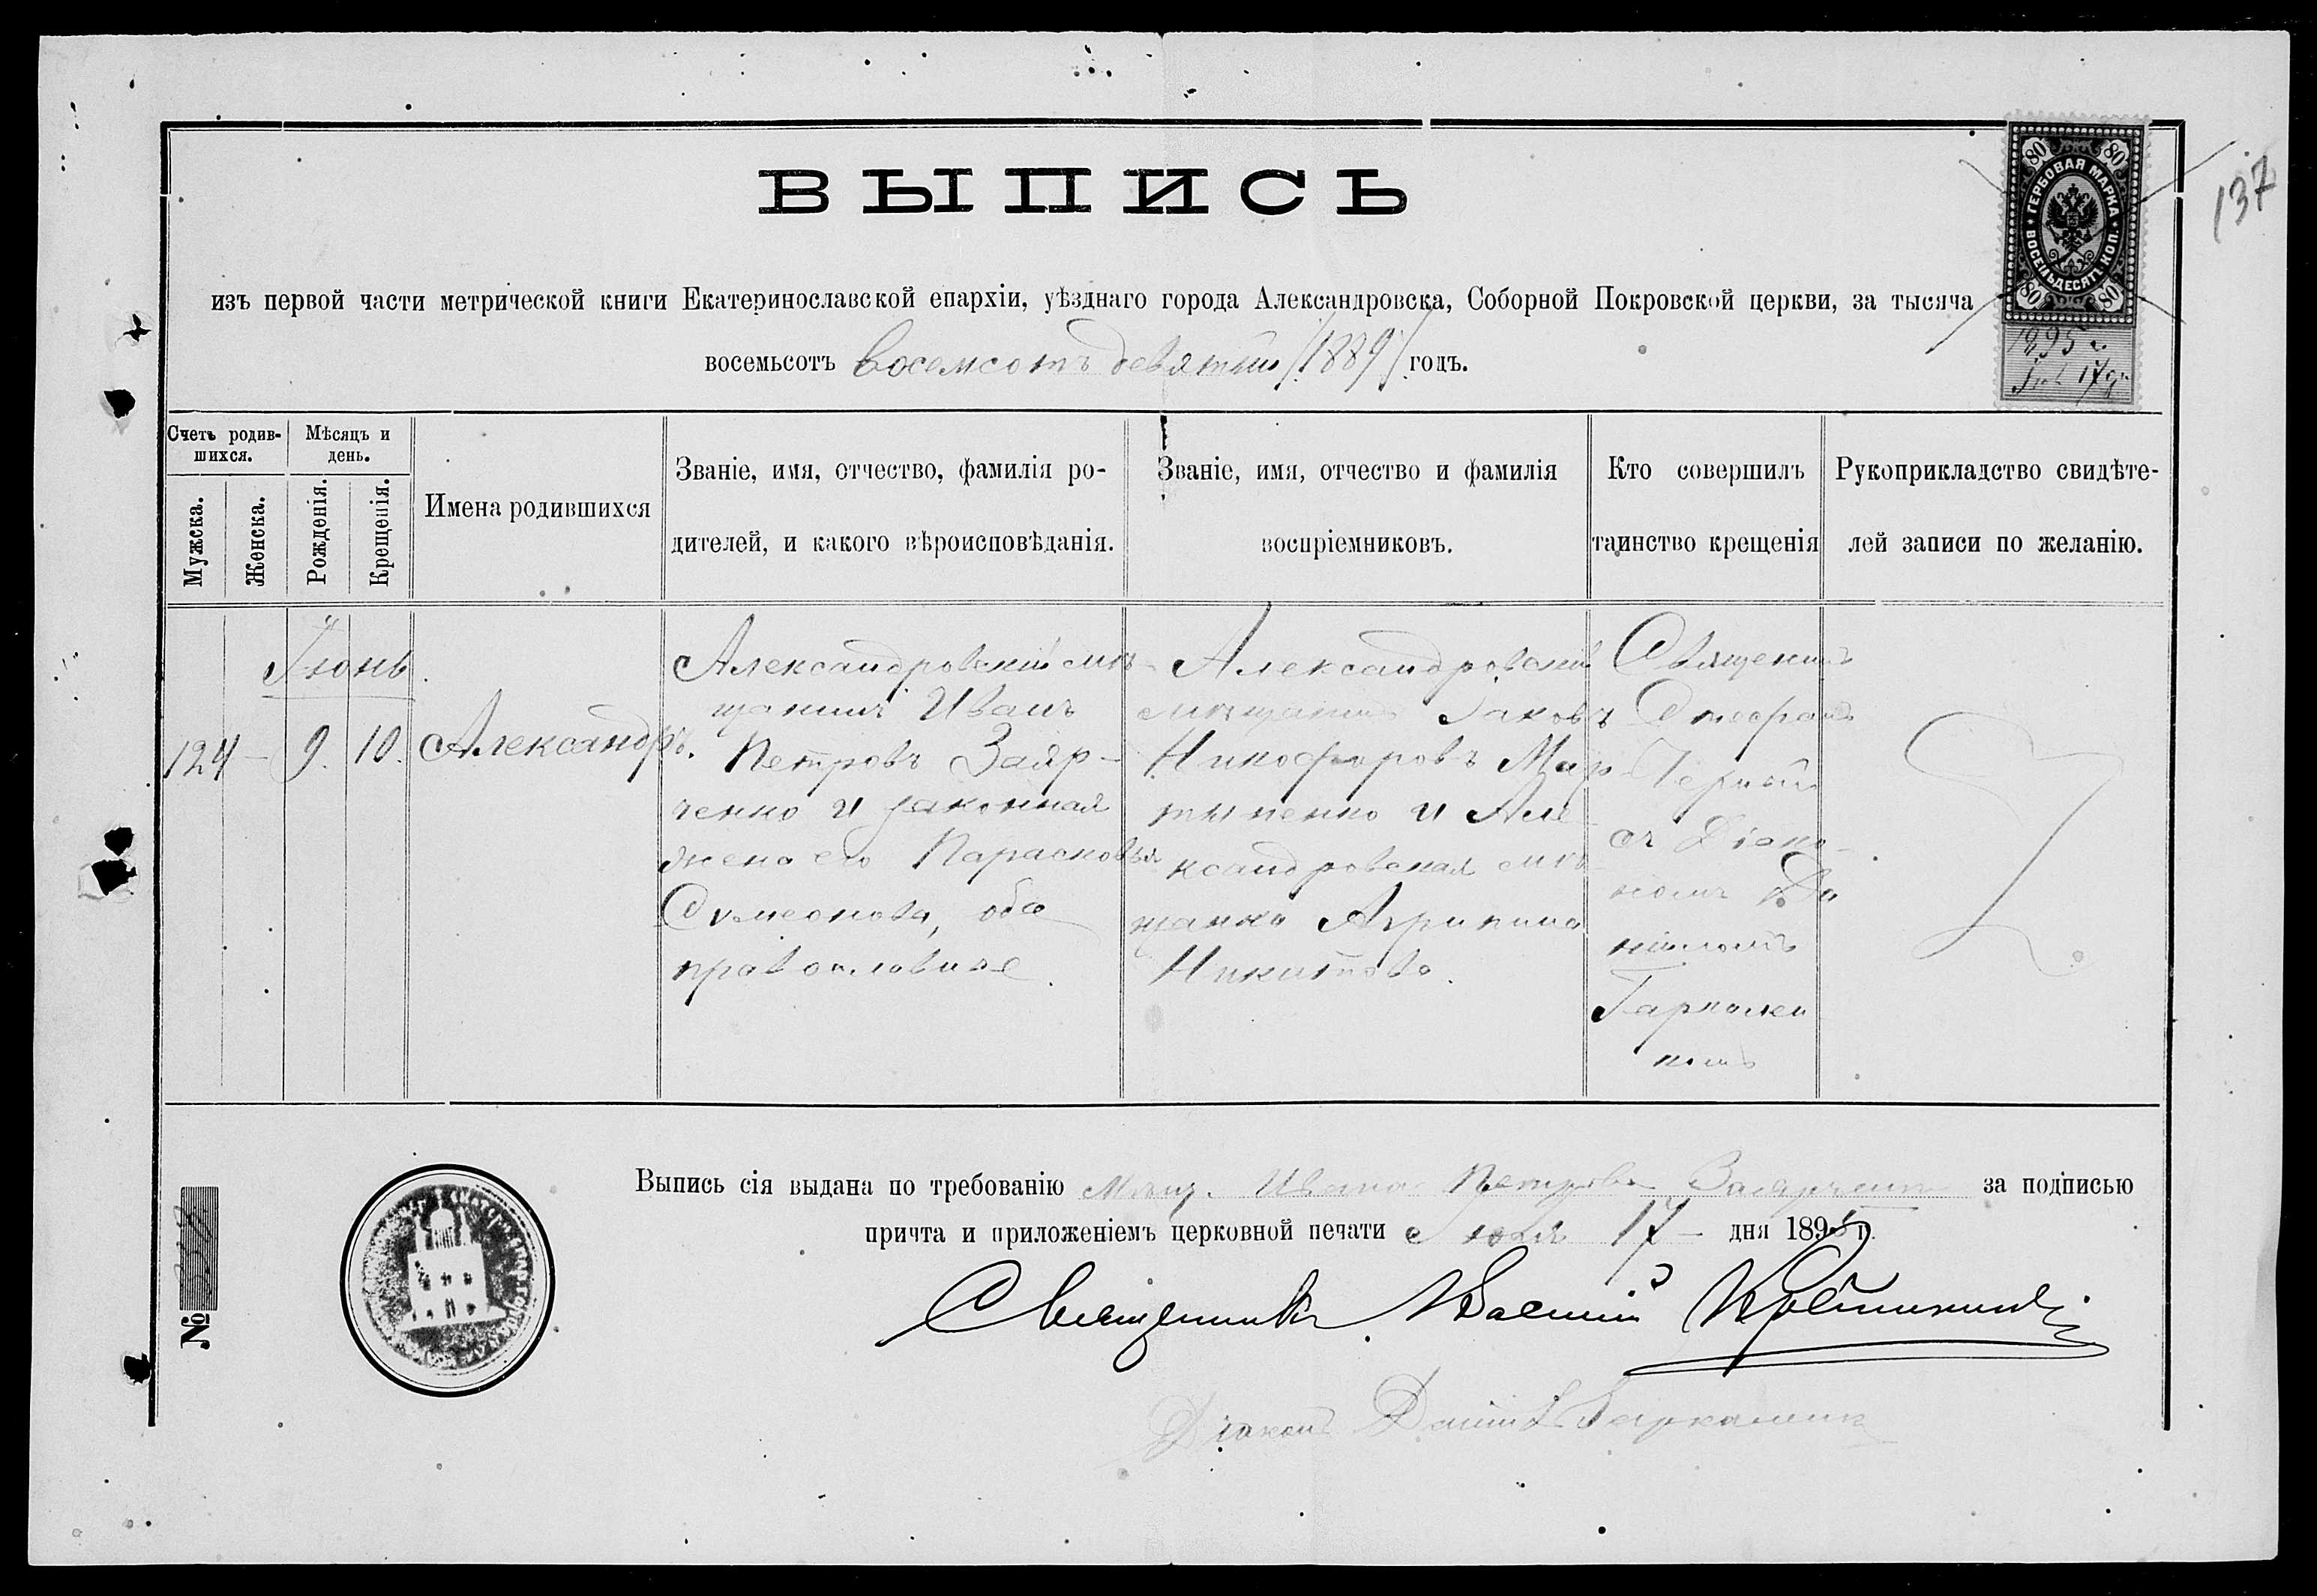 137
ВЫПИСЬ
80 80
ГЕРБОВАЯ МАРКА
ВОСЕМЬДЕСЯТЪ КОП.
80 80
1895 г.
17
изъ первой части метрической книги Екатеринославской епархіи, уѣзднаго города Александровска, Соборной Покровской церкви, за тысяча
восемьсотъ восемсотъ девятый /1889/ годъ.
Счетъ родив-
шихся.
Мужска.
Женска.
Мѣсяцъ и
день.
Рожденія.
Крещенія.
Имена родившихся
Званіе, имя, отчество, фамилія ро-
дителей, и какого вѣроисповѣданія.
Званіе, имя, отчество и фамилія
воспріемниковъ.
Кто совершилъ
таинство крещенія
Рукоприкладство свидѣте-
лей записи по желанію.
Іюнь.
124 – 9. 10. Александръ.
Александровскій мѣ-
щанинъ Иванъ
Петровъ Заяр-
ченко и законная
жена его Парасковья
Симеонова, оба
православные.
Александровскій
мѣщанинъ Іаковъ
Никифоровъ Мар-
тыненко и Але
ксандровская мѣ
щанка Агрипина
Никитова.
Священникъ
Черный
съ Діако-
номъ Да
ніиломъ
Выпись сія выдана по требованію мѣщ. Ивана Петрова Заярченко за подписью
причта и приложеніемъ церковной печати Іюля 17 – дня 1895 г.
№
Священникъ
Діаконъ Даніилъ